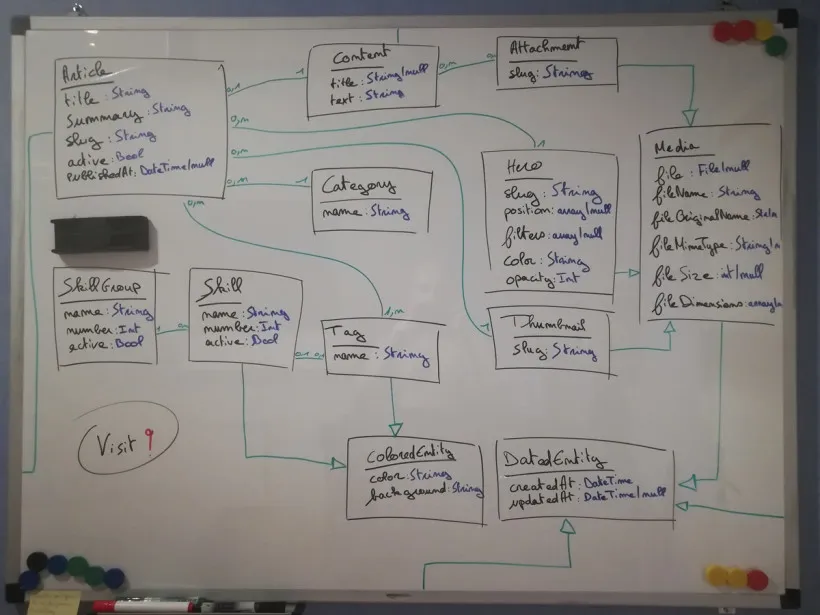 Article
title : String
Summary : String
slug : String
active : Bool
publishedAt : DateTime/null
0,1
1
Content
title : String/null
text : String
0,m
Attachment
slug : String
0,m
1
0,m
0,m
1
Category
name : String
0,m
Hero
slug : String
position : array/null
filters : array/null
color : String
opacity : Int
Media
file : File/null
fileName : String
fileOriginalName :
fileMimeType : String/n
fileSize : int/null
fileDimensions : array/n
SkillGroup
name : String
number : Int
active : Bool
1
Skill
name : String
number : Int
active : Bool
1,m
Tag
name : String
1
Thumbnail
slug : String
Visit ?
ColoredEntity
color : String
background : String
DatedEntity
createdAt : DateTime
updatedAt : DateTime/null